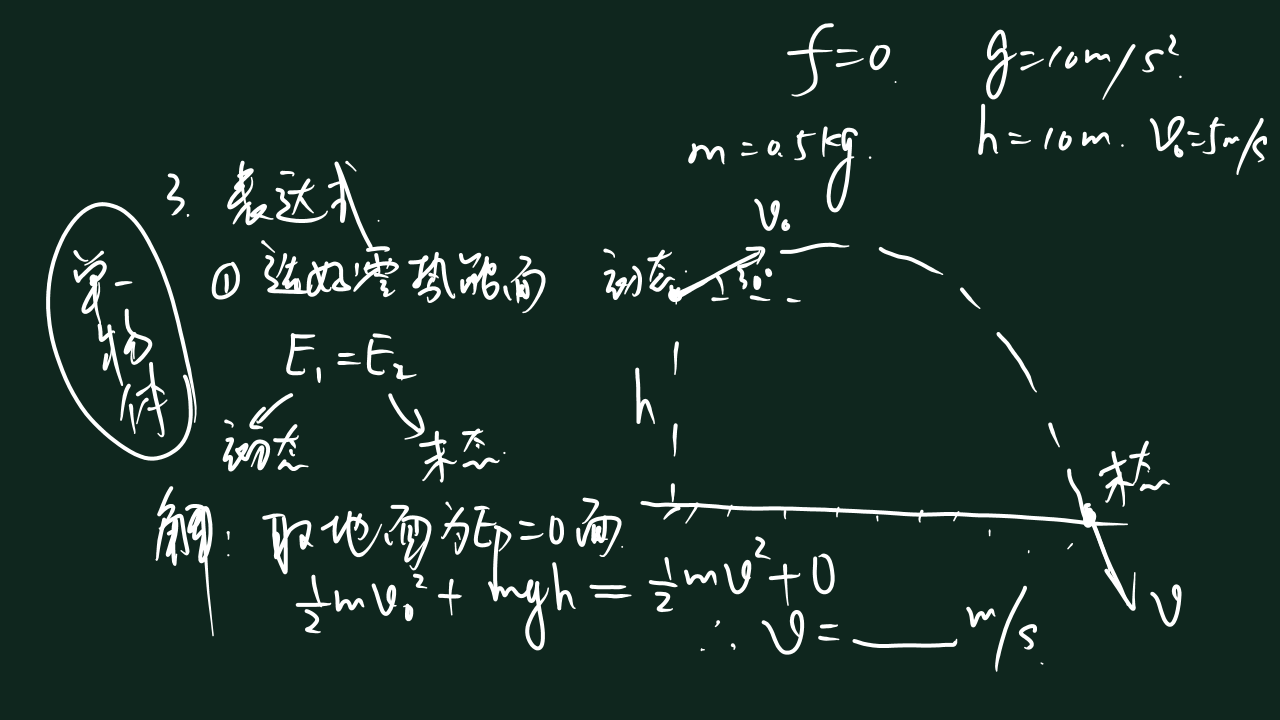 f=0. g=10m/s².
m=0.5kg. h=10m. v₀=5m/s
3. 表达式.
v₀
单一物体
① 选好零势能面
初态
30°
E₁=E₂
h
初态 末态.
末态
解: 取地面为Ep=0面.
½mv₀²+mgh=½mv²+0
v
∴ v=____ m/s.